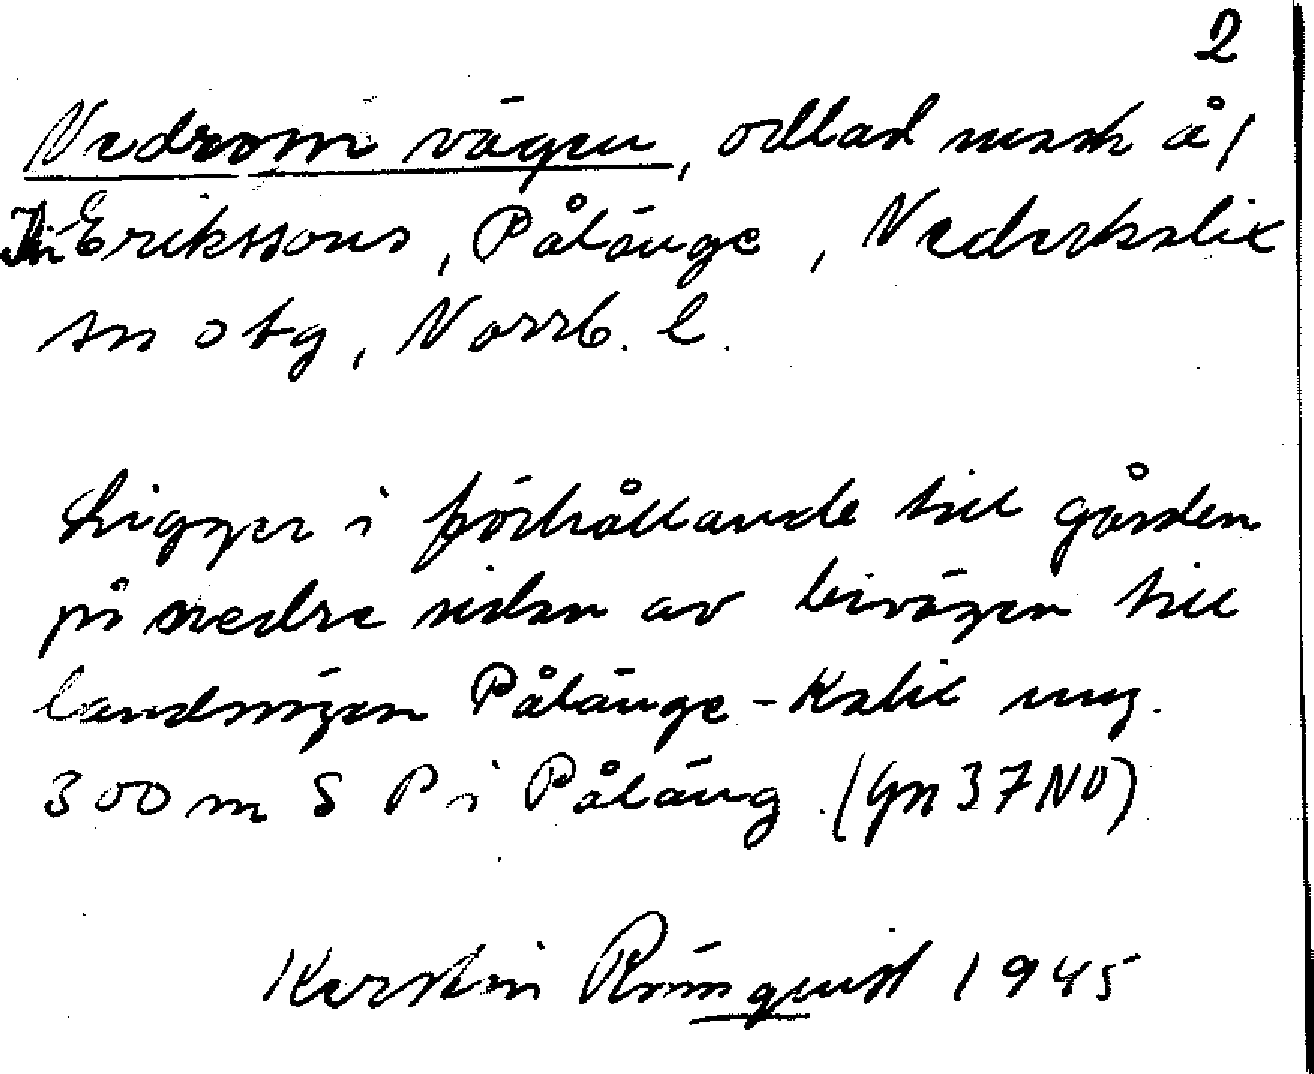 2
Nedrom vägen, odlad mark å
Erikssons, Pålänge, Nederkalix
sn o tg, Norrb. l.
Ligger i förhållande till gården
på nedre sidan av bivägen till
landsvägen Pålänge-Kalix ung.
300 m S P i Påläng (Gn 37 NO)
Kerstin 1945